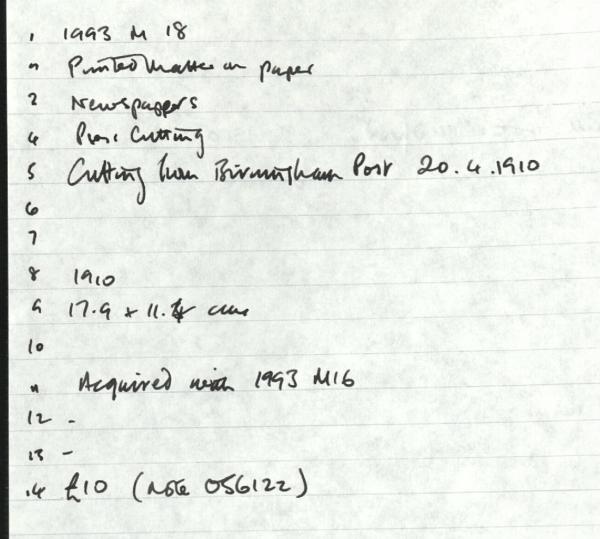 1 1993 M 18
2 Printed Matter on paper
3 Newspapers
4 Press Cutting
5 Cutting from Birmingham Post 20.4.1910
6
7
8 1910
9 17.9 x 11. cms
10
11 Acquired with 1993 M16
12 -
13 -
14 £10 (note 056122)